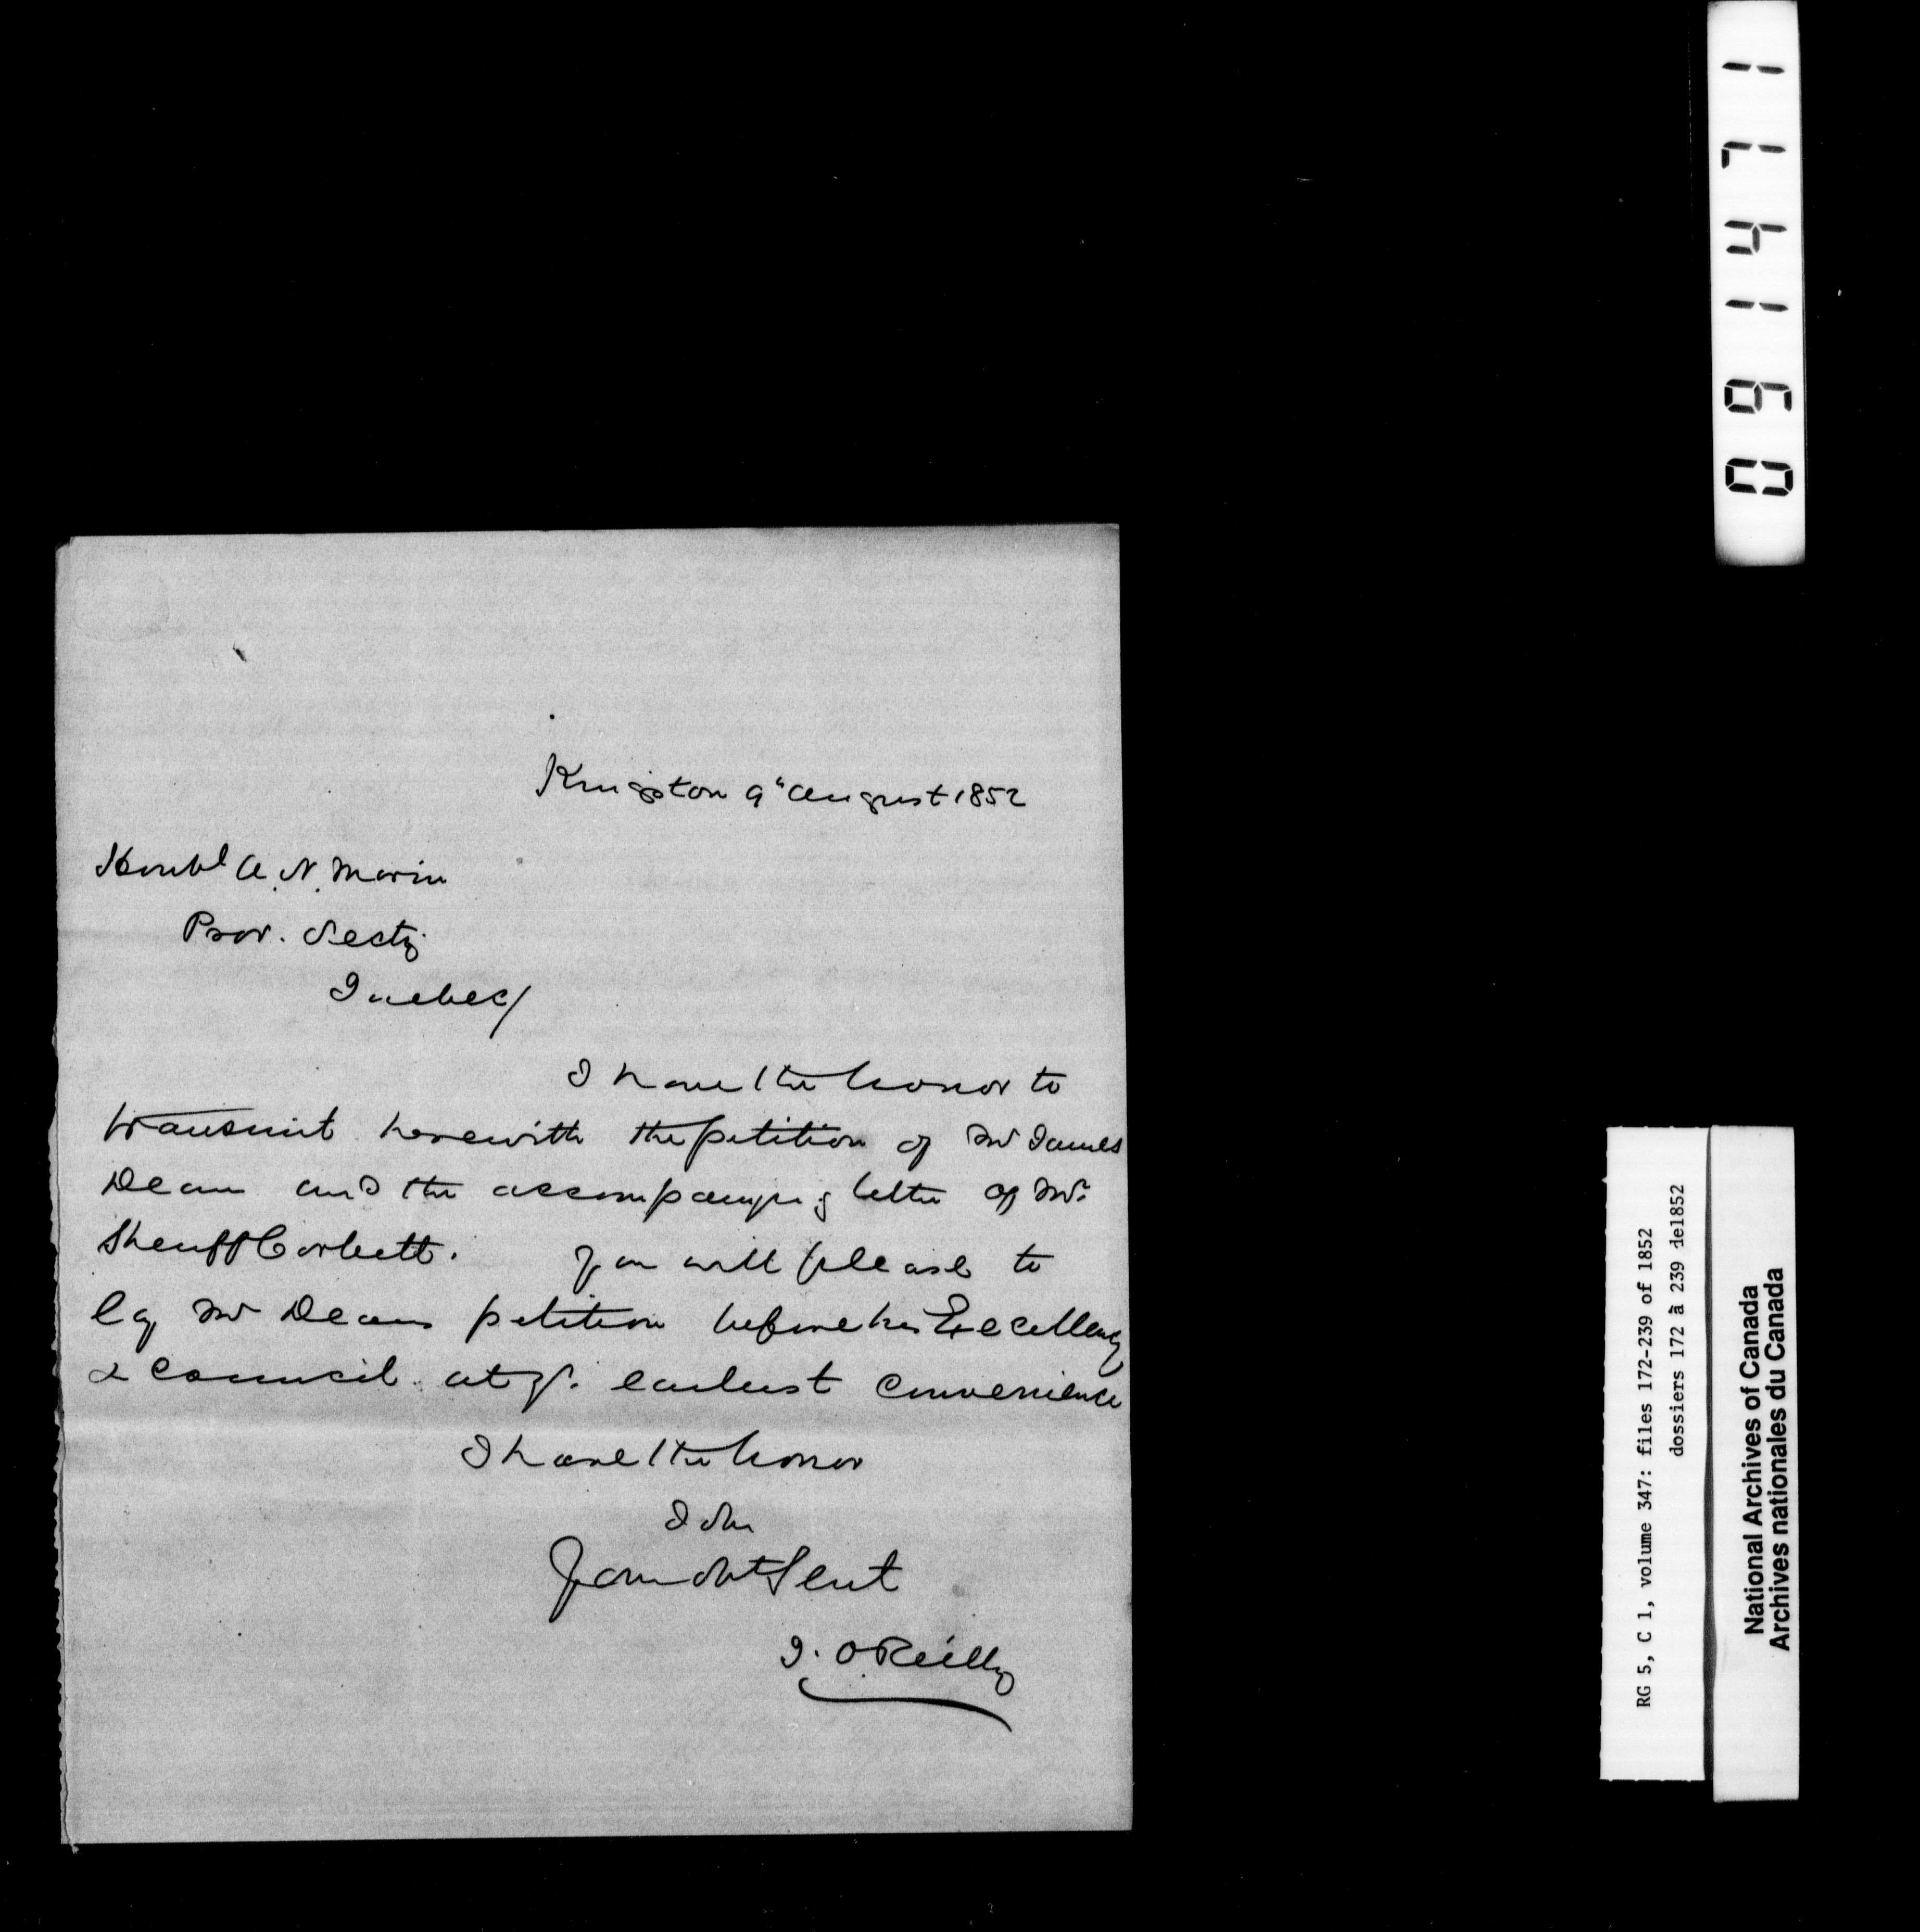 Kingston 9" August 1852
Honbl A. N. Morin
Prov. Secty
Quebec/
I have the honor to
transmit herewith the petition of Mr James
Dean and the accompanying letter of Mr.
Sheriff Corbett. You will please to
lay Mr Deans petition before his Excellency
& Council at yr. earliest convenience
I have the honor
Your obt Sert
J. O.Reilly
091471
RG 5, C 1, volume 347: files 172-239 of 1852
dossiers 172 à 239 de1852
National Archives of Canada
Archives nationales du Canada